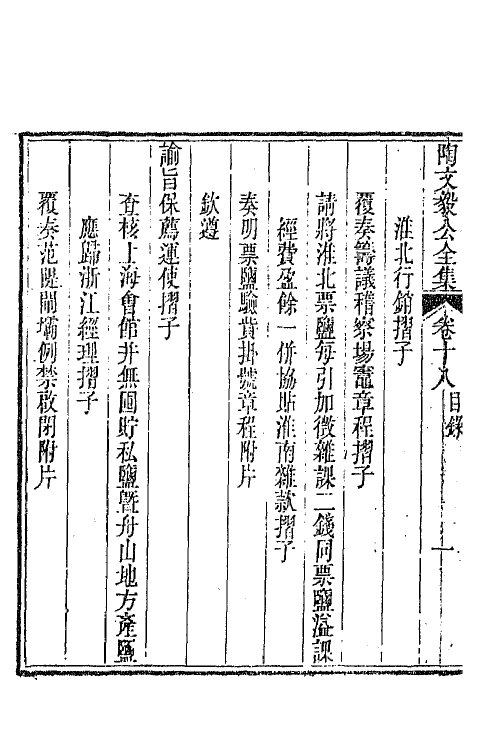 陶文毅公全集 卷十八 目錄 一
淮北行銷摺子
覆奏籌議稽察場竈章程摺子
請將淮北票鹽每引加徵雜課二錢同票鹽溢課
經費盈餘一併協貼淮南雜款摺子
奏明票鹽驗貲掛號章程附片
欽遵
諭旨保薦運使摺子
查核上海會館并無囤貯私鹽暨舟山地方產鹽
應歸浙江經理摺子
覆奏范隄閘壩例禁啟閉附片